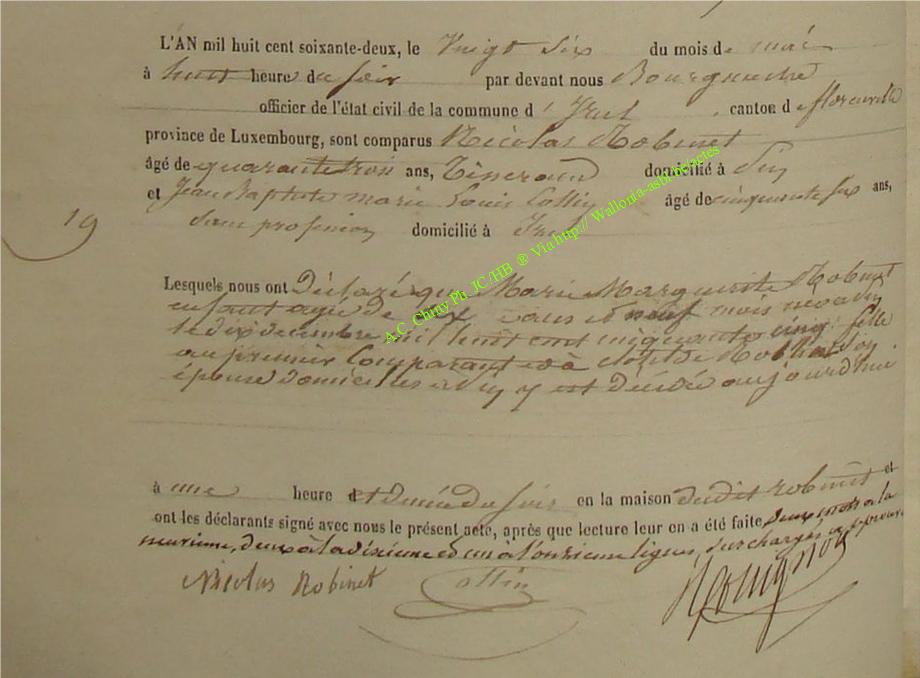 L'AN mil huit cent soixante-deux, le Vingt Six du mois de mai
à huit heure du soir par devant nous Bourguemestre
officier de l'état civil de la commune d'Izel, canton de florenville
province de Luxembourg, sont comparus Nicolas Robinet
âgé de quarante trois ans, Tisserand domicilié à
et Jean Baptiste marie Louis Collin âgé de cinquante six ans,
19
sans profession domicilié à Izel
Lesquels nous ont Déclaré que Marie Marguerite Robinet
enfant agée de six ans et neuf mois née à
le dix decembre mil huit cent cinquante cinq fille
au premier Comparant et à son
épouse domiciliés à y est décédée aujourd'hui
à une heure et demie du soir en la maison dudit robinet et
ont les déclarants signé avec nous le présent acte, après que lecture leur en a été faite, deux mots à la
neuvieme, deux à la dixieme et un à l'onzieme lignes, surchargés approuvés
Nicolas Robinet Collin
A.C. Chiny Pu JC/HB ® Via http:// Wallonia-asbl/actes